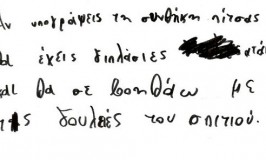 ν υπογράψεις τη συνθήκη πίτσας
α έχεις διπλάσιες
αι θα σε βοηθάω με
τις δουλειές του σπιτιού.